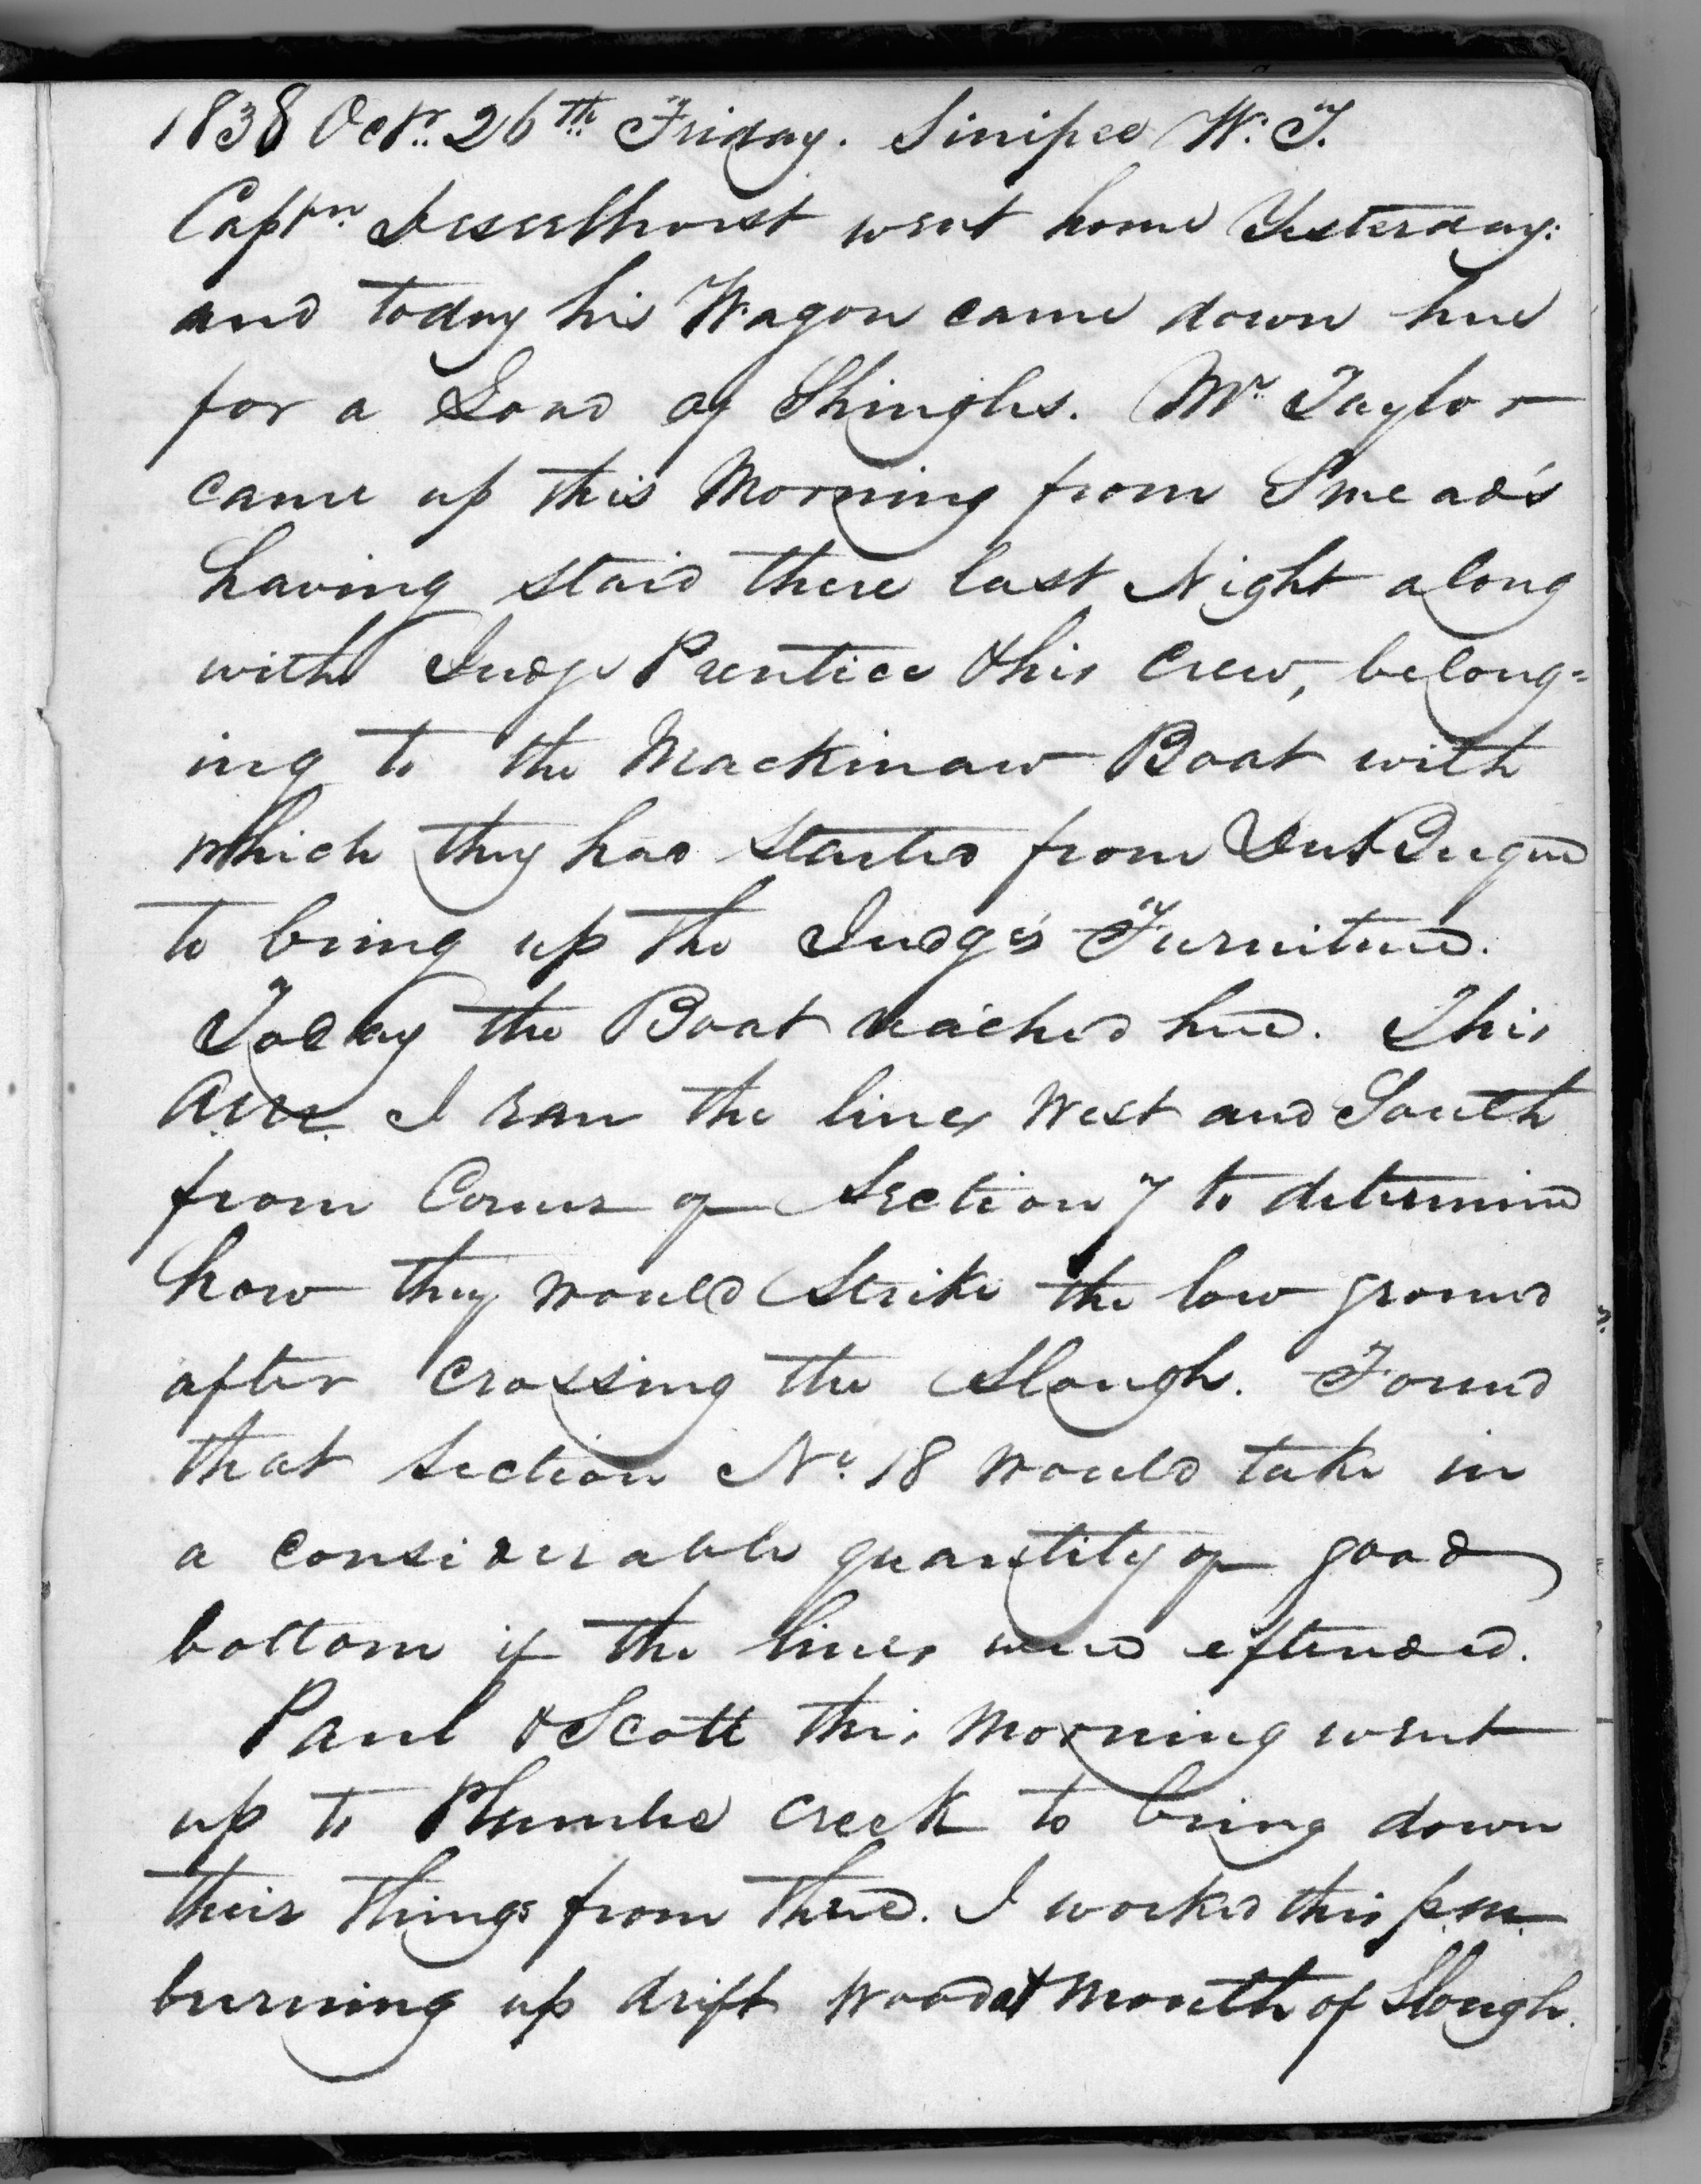 1838 Octr. 26th Friday. Sinipee W. T.
Captn. went home Yesterday:
and today his Wagon came down here
for a Load of Shingles. Mr Taylor
came up this Morning from Smead's
having staid there last Night along
with Judge Prentice & his Crew, belong=
ing to the Mackinaw Boat with
which they had started from DuBuque
to bring up the Judge's Furniture.
Today the Boat reached here. This
I ran the lines West and South
from Corner of Section 7 to determine
how they would Strike the low ground
after crossing the Slough. Found
that Section No. 18 would take in
a considerable quantity of good
bottom if the lines were extended.
Paul & Scott this Morning went
up to Plumbe Creek to bring down
their things from there. I worked this p.m.
burning up drift Wood at Mouth of Slough.